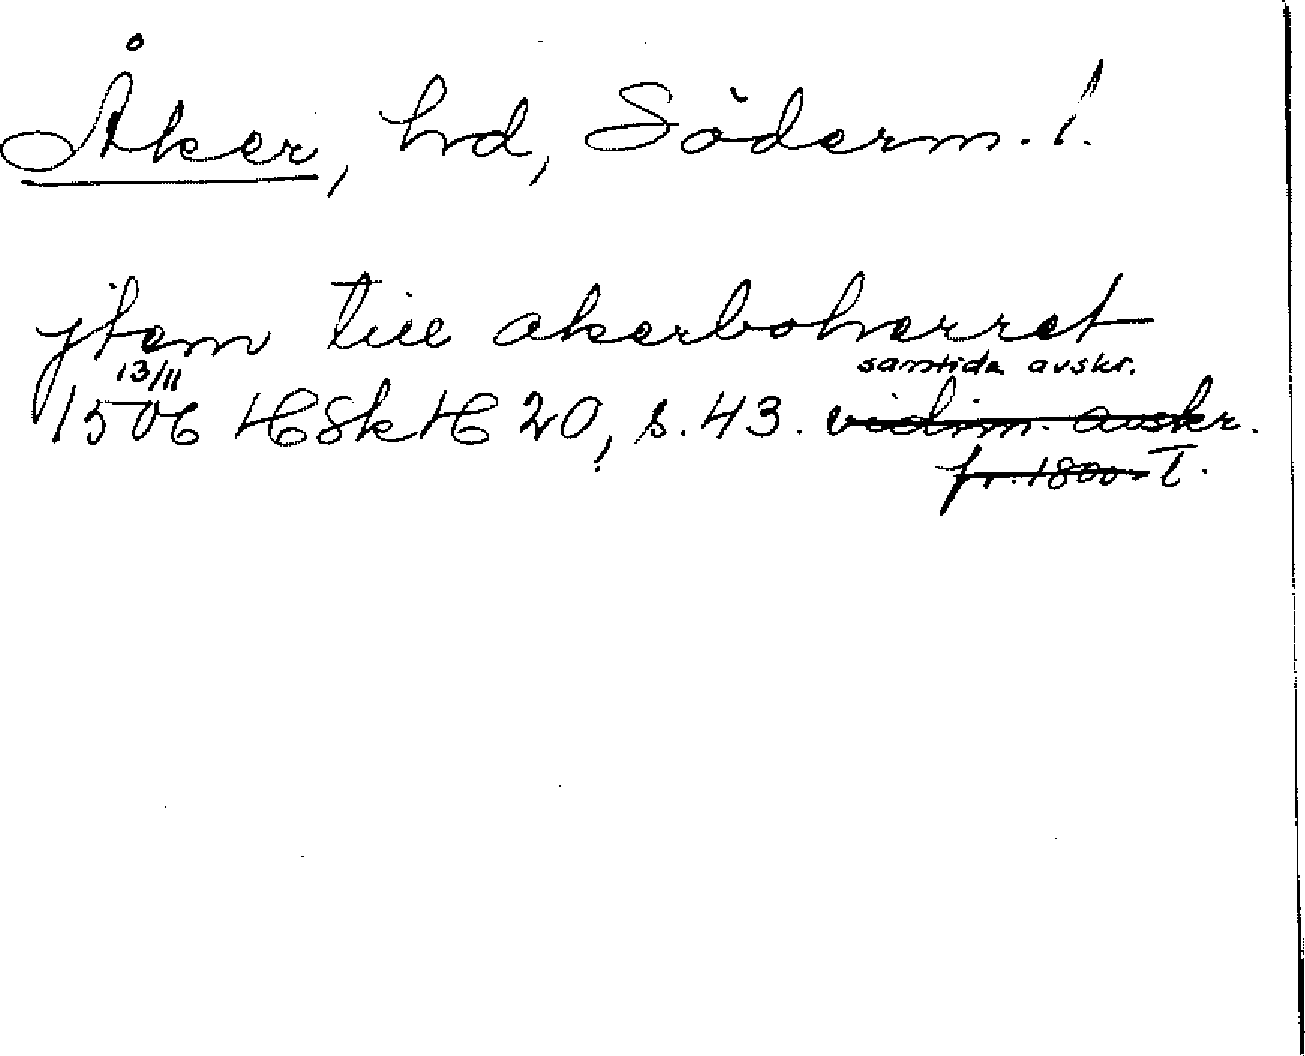 Åker, hd, Söderm. l.
jtem till akerboherret
13/11 samtida avskr.
1506 HSk H 20, s. 43. vidim. avskr.
fr. 1800-T.